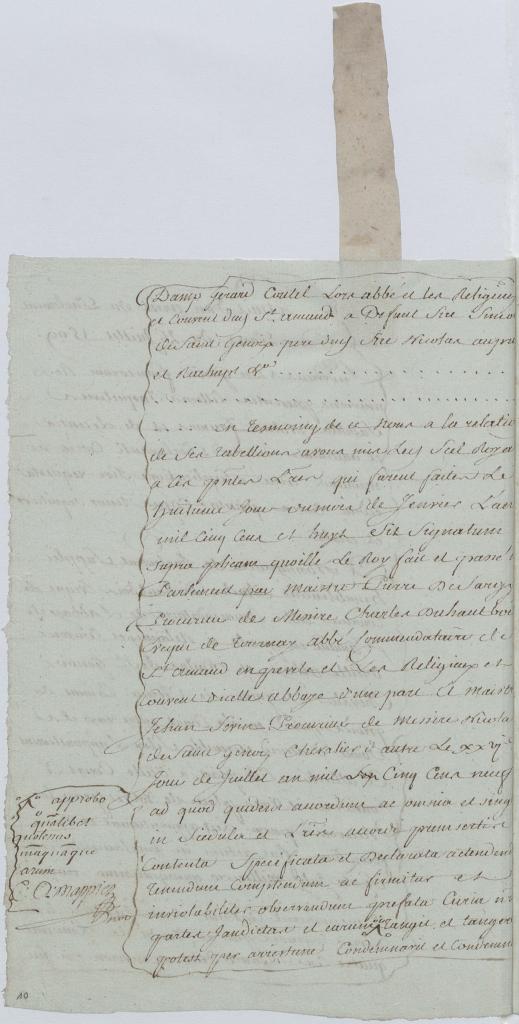 Damp Gerard Coutel Lors abbé et les Religieux
et Couvent duy St. amand a Defunt Sire Simo
de Saint Genoix pere duy Sire Nicolas
et Rachapt &a
En temoing de ce nous a la relatio
de Ses tabellions avons mis Ledy Scel Roya
a Ces pntes Lres qui furent faites Le
huitieme Jour du mois de Fevrier L'an
mil Cinq Cens et huyt Sit Signatum
supra plicam quoille Le Roy fait et passé
Parlement par maistre Pierre De
Procureur de Messire Charles Duhautboi
Evêque de tournay abbé Commandataire de
St amand en pevele et Les Religieux et
Couvent dicelle abbaye d'une part Et maistr
Jehan Procureur de messire Nicolas
de Saint genoix Chevalier d'autre Le xxvj
Jour de Juillet an mil Cinq Cens neuf
ad quod quidem accordum ac omnia et sing
in Scedula et Lris accordi
Contenta Specificata et Declarata
tenendum Complendum ac firmiter et
inviolabiliter observandum prefata Curia
partes Jamdictas et earum tangit et tangere
potest per arrestum Condemnavit et Condemn
approbo
qualibet
quatenus
10